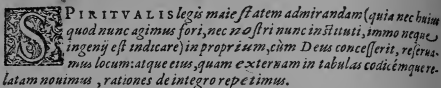 SPIRITVALIS legis maiestatem admirandam (quia nec huius
quod nunc agimus fori, nec nostri nunc instituti, immo neque
ingenij est indicare) in proprium, cùm Deus concesserit, reserua-
mus locum: atque eius, quam externam in tabulas codicémque re-
latam nouimus, rationes de integro repetimus.